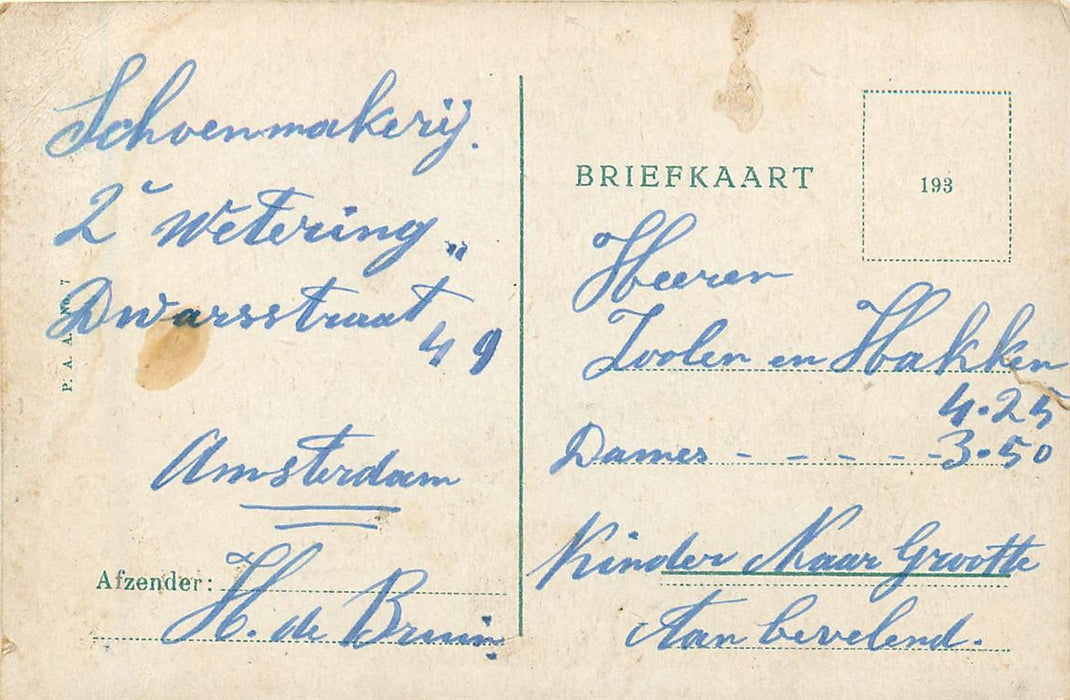 Schoenmakerij.
2e Wetering„
Dwarsstraat
49
Amsterdam
Afzender: H. de Bruin
P. A. A. No. 7
BRIEFKAART
193
Heeren
Zoolen en Hakken
4.25
Dames - - - - - 3.50
Kinder Naar Grootte
Aan bevelend.